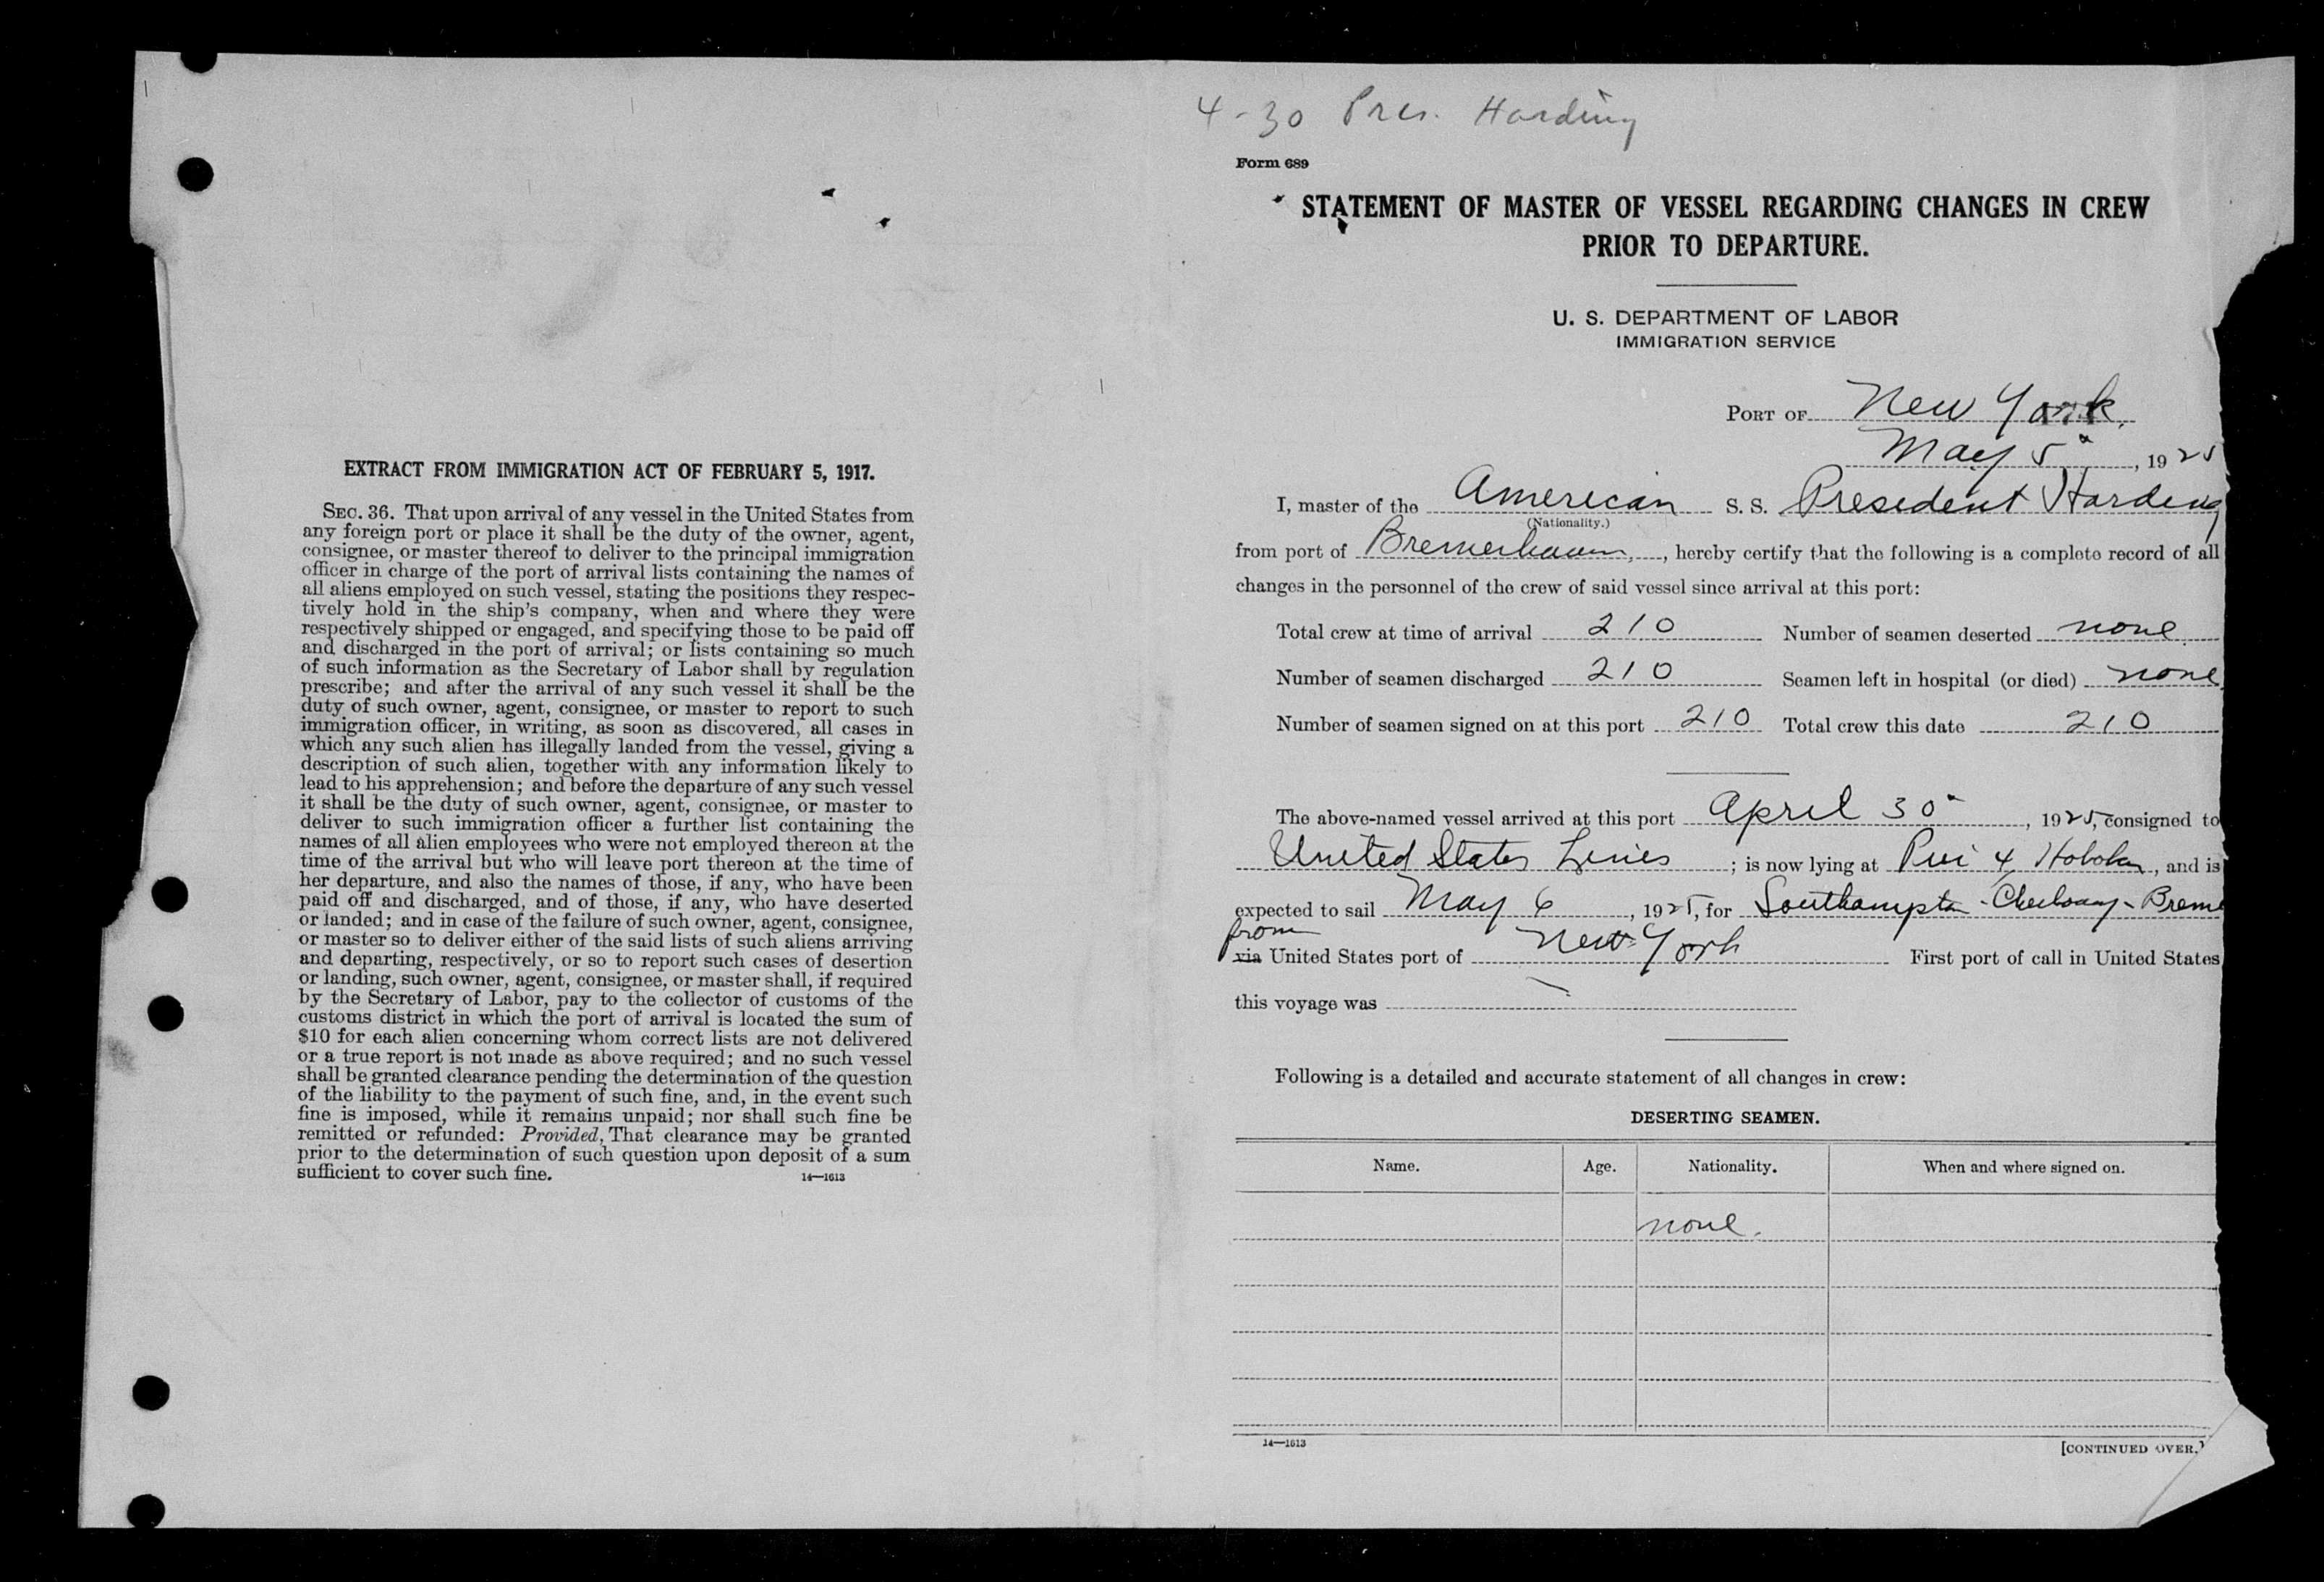 EXTRACT FROM IMMIGRATION ACT OF FEBRUARY 5, 1917.
SEC. 36. That upon arrival of any vessel in the United States from
any foreign port or place it shall be the duty of the owner, agent,
consignee, or master thereof to deliver to the principal immigration
officer in charge of the port of arrival lists containing the names of
all aliens employed on such vessel, stating the positions they respec-
tively hold in the ship's company, when and where they were
respectively shipped or engaged, and specifying those to be paid off
and discharged in the port of arrival; or lists containing so much
of such information as the Secretary of Labor shall by regulation
prescribe; and after the arrival of any such vessel it shall be the
duty of such owner, agent, consignee, or master to report to such
immigration officer, in writing, as soon as discovered, all cases in
which any such alien has illegally landed from the vessel, giving a
description of such alien, together with any information likely to
lead to his apprehension; and before the departure of any such vessel
it shall be the duty of such owner, agent, consignee, or master to
deliver to such immigration officer a further list containing the
names of all alien employees who were not employed thereon at the
time of the arrival but who will leave port thereon at the time of
her departure, and also the names of those, if any, who have been
paid off and discharged, and of those, if any, who have deserted
or landed; and in case of the failure of such owner, agent, consignee,
or master so to deliver either of the said lists of such aliens arriving
and departing, respectively, or so to report such cases of desertion
or landing, such owner, agent, consignee, or master shall, if required
by the Secretary of Labor, pay to the collector of customs of the
customs district in which the port of arrival is located the sum of
$10 for each alien concerning whom correct lists are not delivered
or a true report is not made as above required; and no such vessel
shall be granted clearance pending the determination of the question
of the liability to the payment of such fine, and, in the event such
fine is imposed, while it remains unpaid; nor shall such fine be
remitted or refunded: Provided, That clearance may be granted
prior to the determination of such question upon deposit of a sum
sufficient to cover such fine. 14—1613
4-30 Pres. Harding
Form 689
STATEMENT OF MASTER OF VESSEL REGARDING CHANGES IN CREW
PRIOR TO DEPARTURE.
U. S. DEPARTMENT OF LABOR
IMMIGRATION SERVICE
PORT OF New York,
May 5, 1925
I, master of the American S. S. President Harding
(Nationality.)
from port of Bremerhaven, hereby certify that the following is a complete record of all
changes in the personnel of the crew of said vessel since arrival at this port:
Total crew at time of arrival 210 Number of seamen deserted none
Number of seamen discharged 210 Seamen left in hospital (or died) none
Number of seamen signed on at this port 210 Total crew this date 210
The above-named vessel arrived at this port April 30, 1925, consigned to
United States Lines; is now lying at Pier 4 Hoboken, and is
expected to sail May 6, 1925, for Southampton - Cherbourg - Breme
from
via United States port of New York First port of call in United States
this voyage was
Following is a detailed and accurate statement of all changes in crew:
DESERTING SEAMEN.
Name. Age. Nationality. When and where signed on.
none.
14—1613 [CONTINUED OVER.]